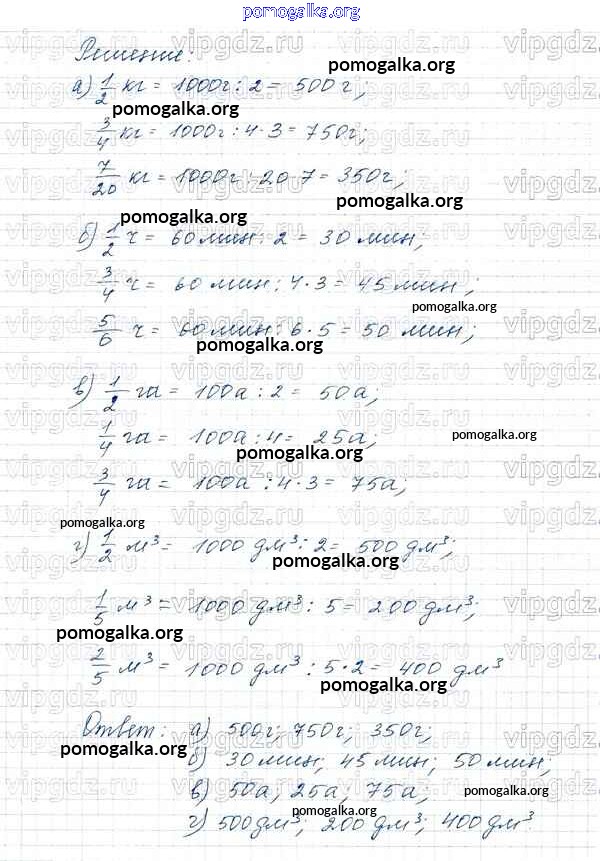 pomogalka.org
Решение:
pomogalka.org
а) 1/2 кг = 1000г : 2 = 500г;
pomogalka.org
3/4 кг = 1000г : 4 · 3 = 750г;
7/20 кг = 1000г : 20 · 7 = 350г;
pomogalka.org
pomogalka.org
б) 1/2 ч = 60 мин : 2 = 30 мин;
3/4 ч = 60 мин : 4 · 3 = 45 мин;
pomogalka.org
5/6 ч = 60 мин : 6 · 5 = 50 мин;
pomogalka.org
в) 1/2 га = 100а : 2 = 50а;
1/4 га = 100а : 4 = 25а;
pomogalka.org
pomogalka.org
3/4 га = 100а : 4 · 3 = 75а;
pomogalka.org
г) 1/2 м³ = 1000 дм³ : 2 = 500 дм³;
pomogalka.org
1/5 м³ = 1000 дм³ : 5 = 200 дм³;
pomogalka.org
2/5 м³ = 1000 дм³ : 5 · 2 = 400 дм³
pomogalka.org
Ответ: а) 500г; 750г; 350г;
pomogalka.org
б) 30 мин; 45 мин; 50 мин;
в) 50а, 25а, 75а;
pomogalka.org
г) 500 дм³; 200 дм³; 400 дм³.
pomogalka.org
vipgdz.ru